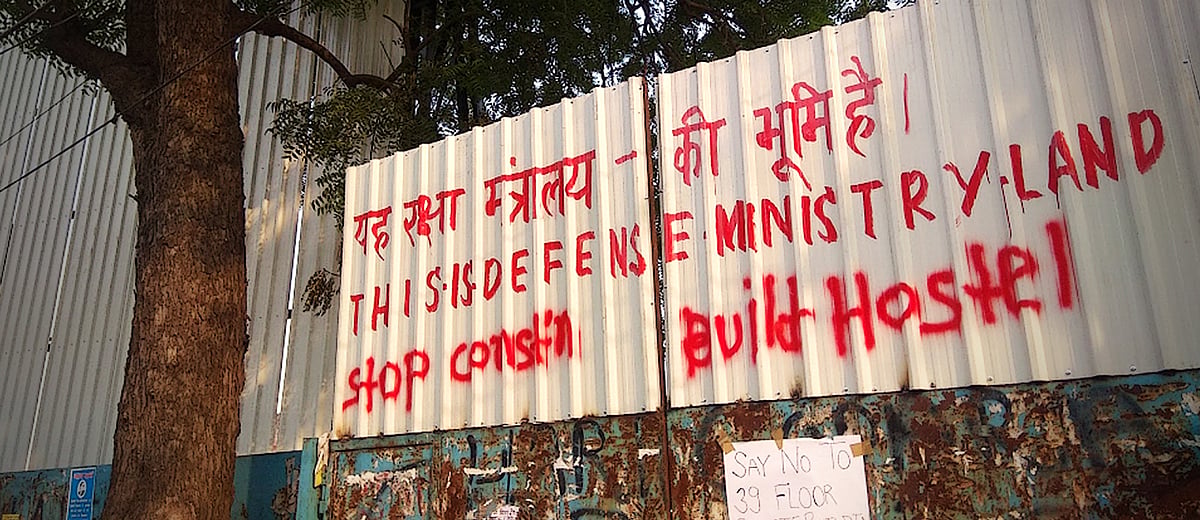 यह रक्षा मंत्रालय - की भूमि है।
THIS.IS.DEFENSE.MINISTRY.LAND
Stop constn Build Hostel
SAY NO TO
39 FLOOR